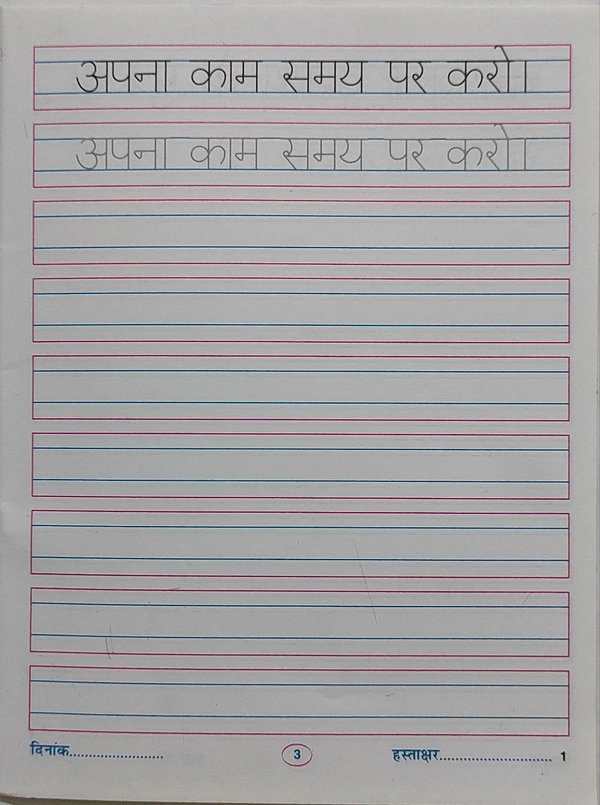 अपना काम समय पर करो।
अपना काम समय पर करो।
दिनांक....................... 3 हस्ताक्षर............................ 1